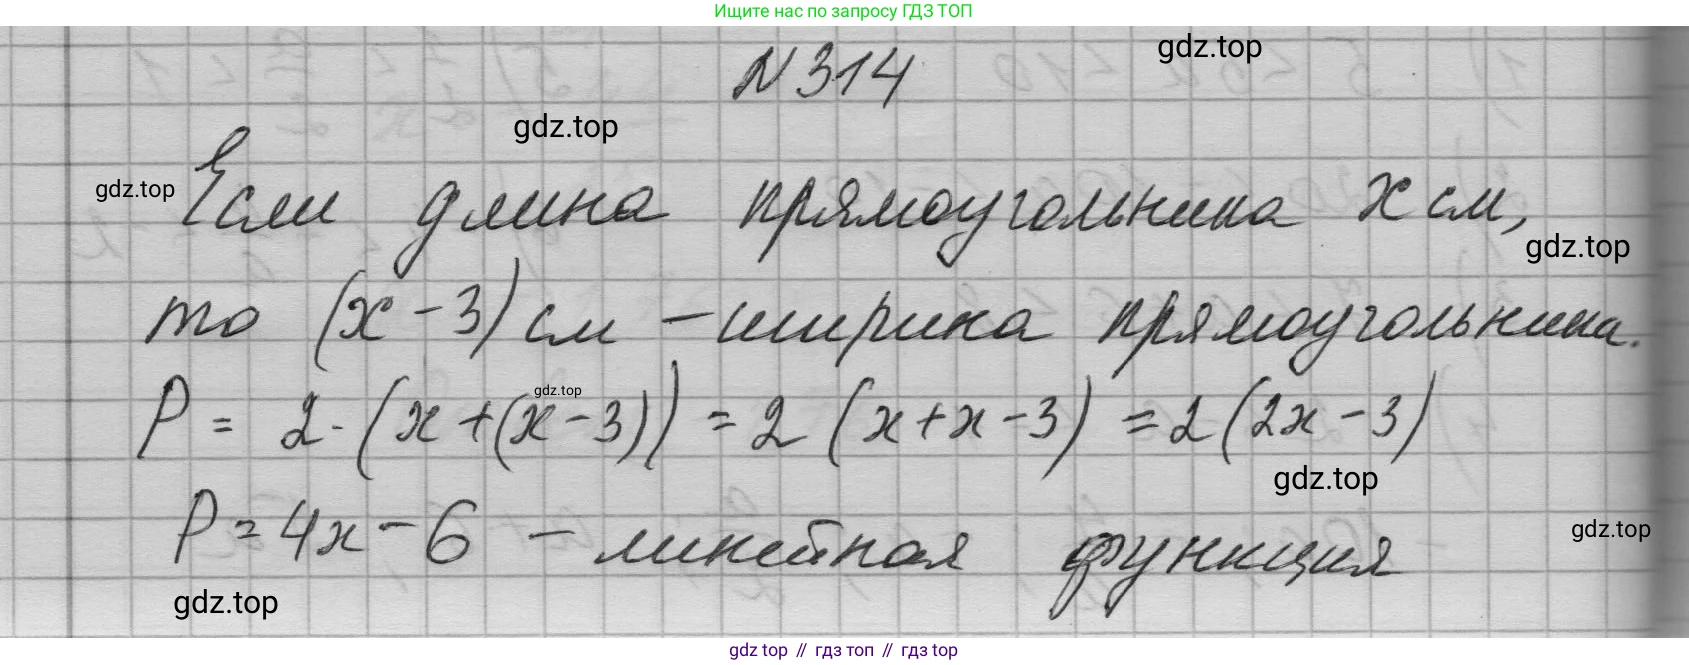 Ищите нас по запросу ГДЗ ТОП
N 314
gdz.top
gdz.top
gdz.top
Если длина прямоугольника x см,
gdz.top
то (x - 3) см - ширина прямоугольника.
gdz.top
P = 2 · (x + (x - 3)) = 2 (x + x - 3) = 2 (2x - 3)
gdz.top
P = 4x - 6 - линейная функция
gdz.top
gdz.top
gdz top // гдз топ // гдз top